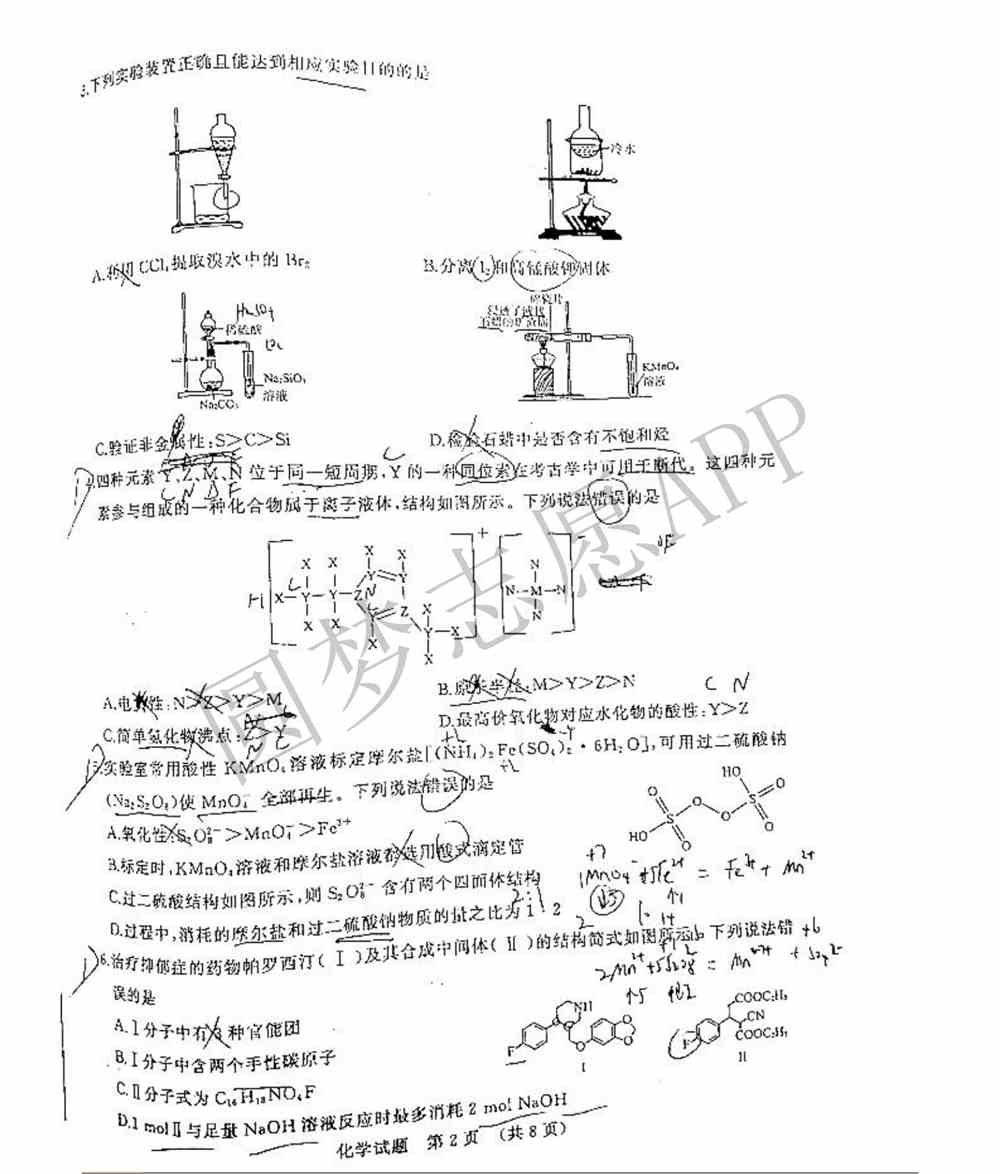 3.下列实验装置正确且能达到相应实验目的的是
冷水
A.利用CCl₄提取溴水中的Br₂
B.分离I₂和高锰酸钾固体
H₂SO₄
稀硫酸
Na₂SiO₃
溶液
Na₂CO₃
碎瓷片
浸透了液状
石蜡的矿渣棉
KMnO₄
溶液
C.验证非金属性:S>C>Si
D.检验石蜡中是否含有不饱和烃
C
四种元素Y、Z、M、N位于同一短周期,Y的一种同位素在考古学中可用于断代。这四种元
C N B F
素参与组成的一种化合物属于离子液体,结构如图所示。下列说法错误的是
A.电负性:N>Z>Y>M
B.原子半径:M>Y>Z>N
C N
C.简单氢化物沸点:Z>Y
N C
D.最高价氧化物对应水化物的酸性:Y>Z
5.实验室常用酸性KMnO₄溶液标定摩尔盐[(NH₄)₂Fe(SO₄)₂·6H₂O],可用过二硫酸钠
(Na₂S₂O₈)使MnO₄⁻全部再生。下列说法错误的是
A.氧化性:S₂O₈²⁻>MnO₄⁻>Fe³⁺
B.标定时,KMnO₄溶液和摩尔盐溶液都选用酸式滴定管
C.过二硫酸结构如图所示,则S₂O₈²⁻含有两个四面体结构
D.过程中,消耗的摩尔盐和过二硫酸钠物质的量之比为1:2
6.治疗抑郁症的药物帕罗西汀(Ⅰ)及其合成中间体(Ⅱ)的结构简式如图所示。下列说法错
误的是
A.Ⅰ分子中有3种官能团
B.Ⅰ分子中含两个手性碳原子
C.Ⅱ分子式为C₁₆H₁₈NO₄F
D.1 molⅡ与足量NaOH溶液反应时最多消耗2 mol NaOH
NH
F
O
Ⅰ
COOC₂H₅
CN
COOC₂H₅
F
Ⅱ
化学试题 第2页 (共8页)
圆梦志愿APP